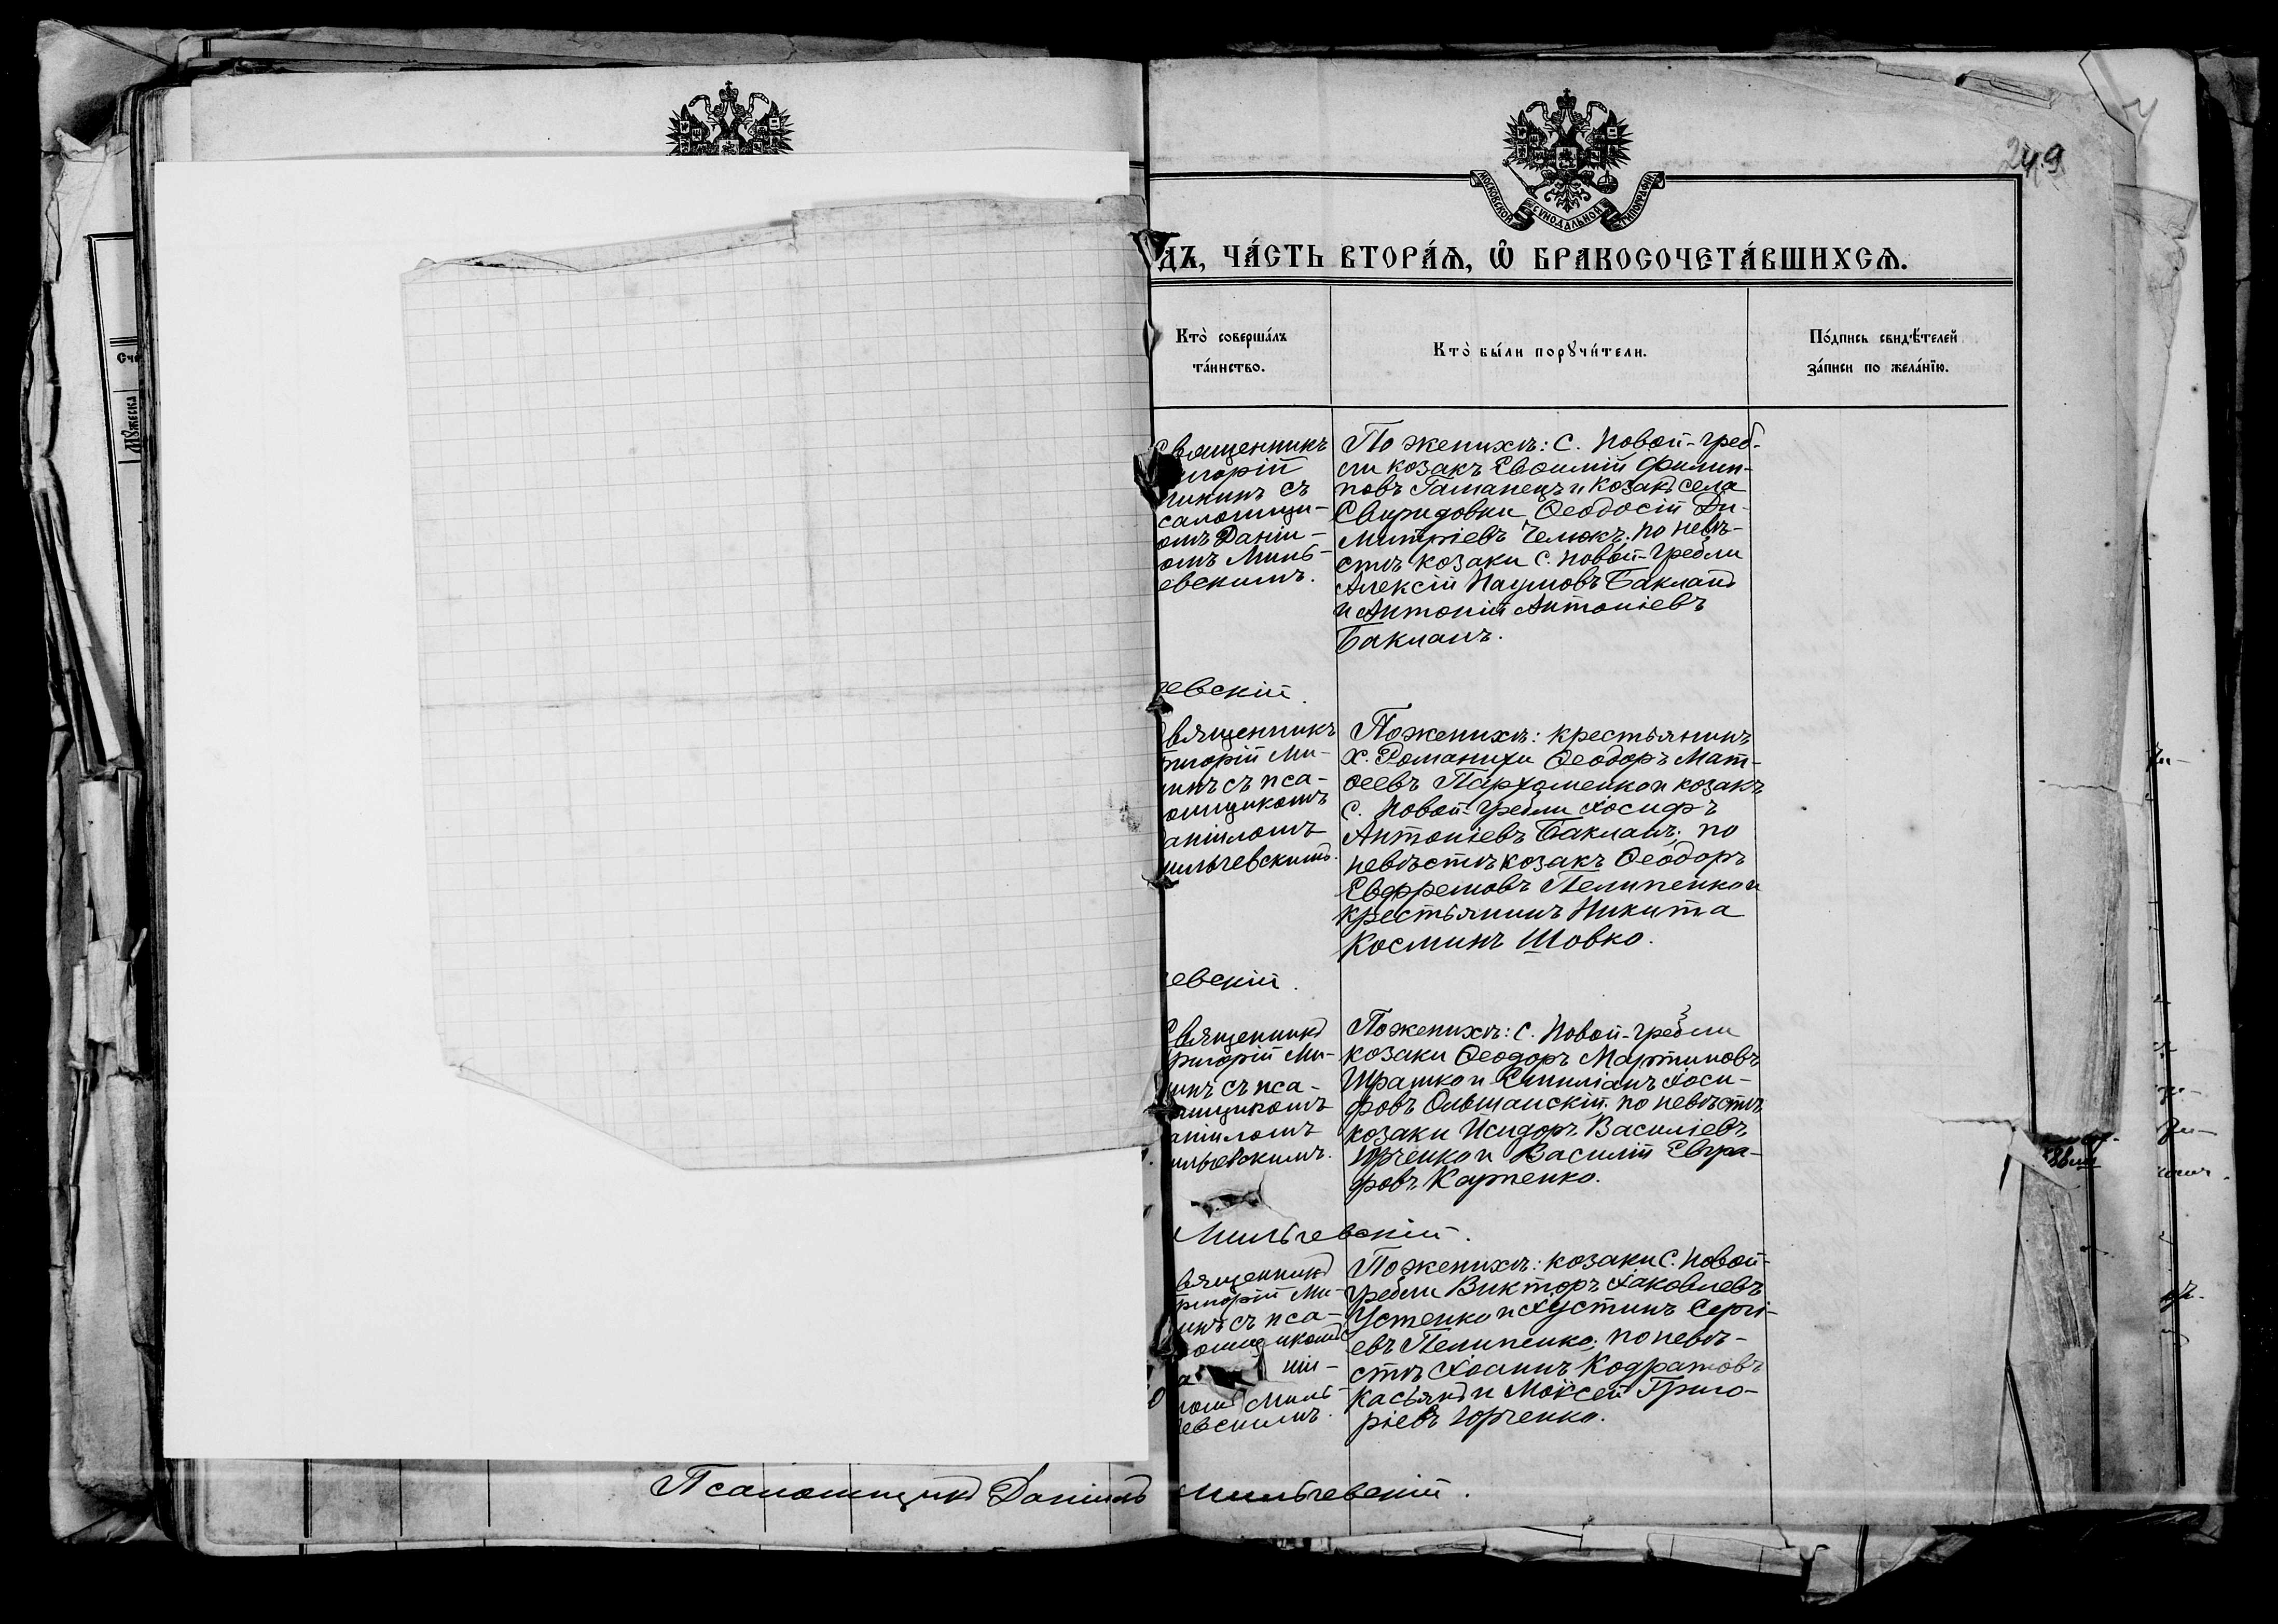 249
МОСКОВСКОЙ СѴНОДАЛЬНОЙ ТИПОГРАФІИ
ДЪ, ЧА́СТЬ ВТОРА́Ѧ, Ѽ БРАКОСОЧЕТА́ВШИХСѦ.
Кто̀ соверша́лъ
та́инство.
Кто̀ бы́ли порꙋчи́тели.
По́дпись свидѣ́телей
за́писи по жела́нїю.
Мꙋжеска
Священникъ
игорій
инъ съ
саломщи-
омъ Даніи-
омъ Миль-
евскимъ.
По женихѣ: с. Новой-Греб-
ли козакъ Евѳимій Филип-
повъ Гаманецъ и козакъ села
Свиридовки Ѳеодосій Ди-
митріевъ Челюкъ; по невѣ-
стѣ козаки с. Новой-Гребли
Алексій Наумовъ Бакланъ
и Антоній Антоніевъ
Бакланъ.
евскій.
Священникъ
ригорій Ми-
инъ съ пса-
омщикомъ
аніиломъ
ильчевскимъ.
По женихѣ: крестьянинъ
х. Романихи Ѳеодоръ Мат-
ѳеевъ Пархоменко и козакъ
с. Новой-Гребли Іосифъ
Антоніевъ Бакланъ; по
невѣстѣ козакъ Ѳеодоръ
Евфремовъ Пелипенко и
крестьянинъ Никита
Косминъ Шовко.
евскій.
Священникъ
ригорій Ми-
инъ съ пса-
омщикомъ
аніиломъ
ильчевскимъ.
По женихѣ: с. Новой-Гребли
козаки Ѳеодоръ Мартиновъ
Ирашко и Емиліанъ Іоси-
фовъ Ольшанскій; по невѣстѣ
козаки Исидоръ Василіевъ
Юрченко и Василій Евгра-
фовъ Карпенко.
Мильчевскій.
вященникъ
ригорій Ми-
инъ съ пса-
омщикомъ
а ніи-
ломъ Миль-
евскимъ.
По женихѣ: козаки с. Новой-
Гребли Викторъ Іаковлевъ
Устенко и Іустинъ Сергі-
евъ Пелипенко; по невѣ-
стѣ Іоаннъ Кодратовъ
Касьянъ и Моѵсей Григо-
ріевъ Юрченко.
Псаломщикъ Даніилъ Мильчевскій.